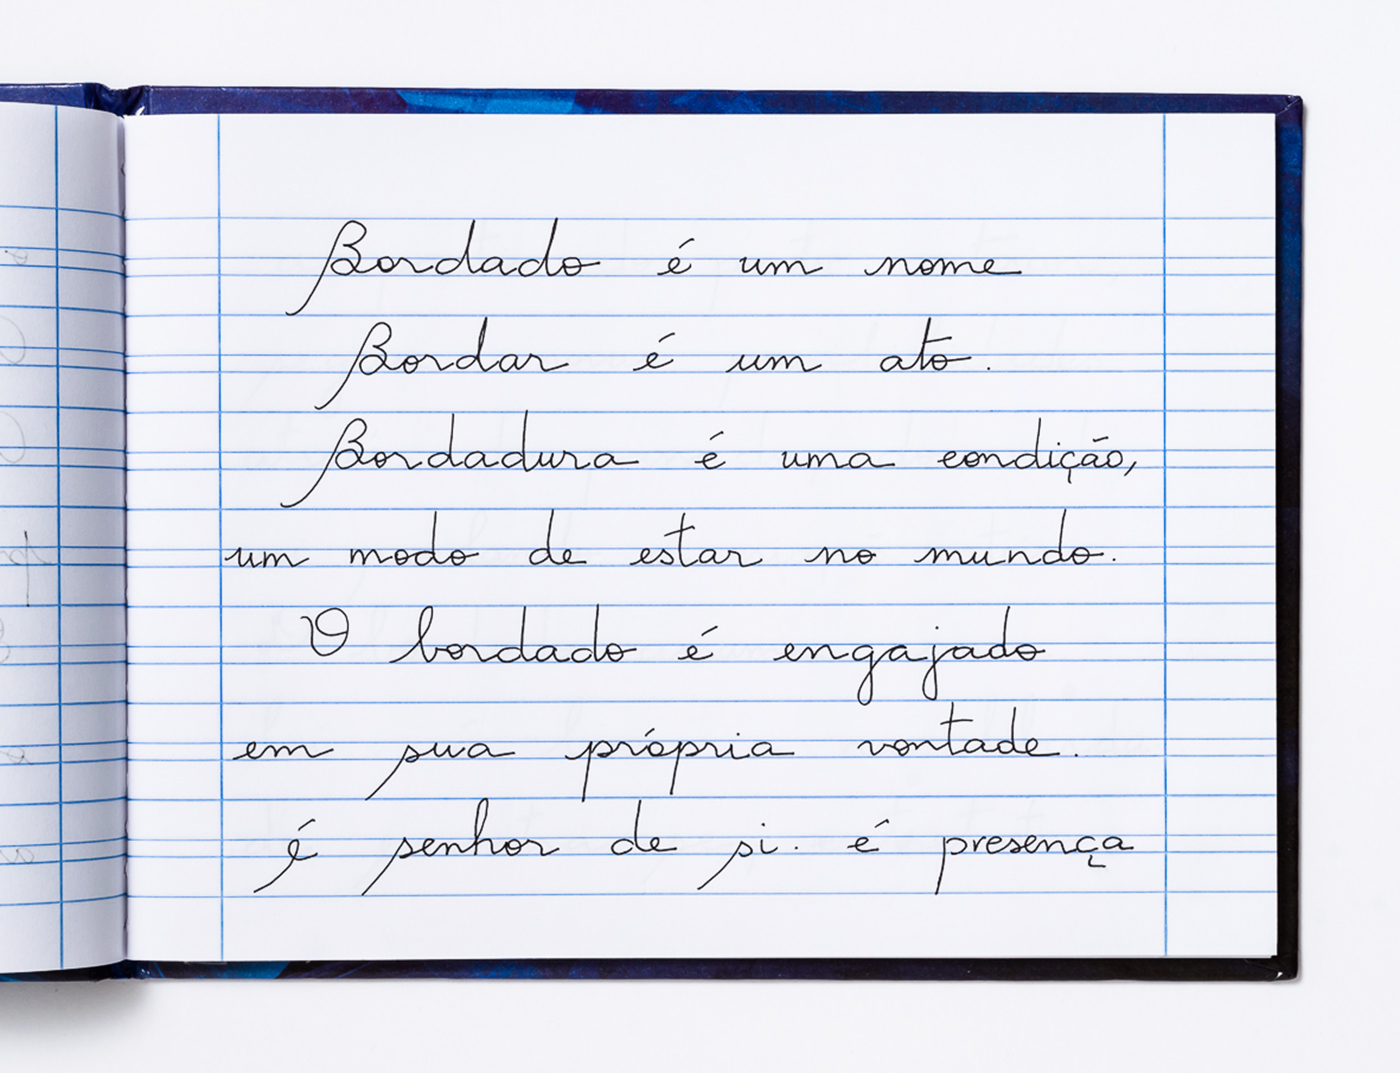 Bordado é um nome
Bordar é um ato.
Bordadura é uma condição,
um modo de estar no mundo.
O bordado é engajado
em sua própria vontade.
é senhor de si. é presença